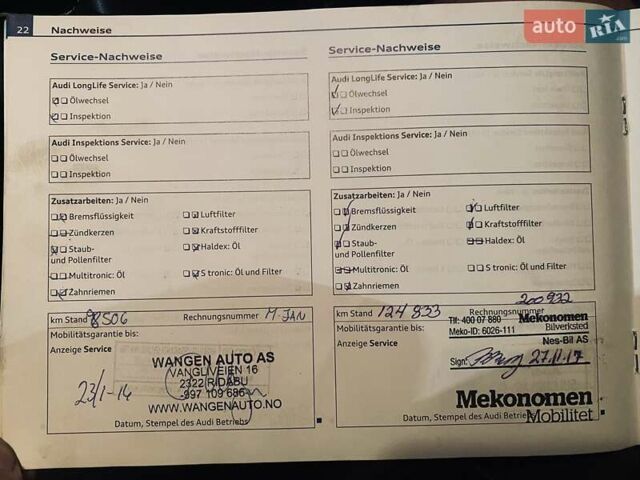 22 Nachweise
auto RIA.com
Service-Nachweise
Audi LongLife Service: Ja / Nein
Ölwechsel
Inspektion
Audi Inspektions Service: Ja / Nein
Ölwechsel
Inspektion
Zusatzarbeiten: Ja / Nein
Bremsflüssigkeit Luftfilter
Zündkerzen Kraftstofffilter
Staub- Haldex: Öl
und Pollenfilter
Multitronic: Öl S tronic: Öl und Filter
Zahnriemen
km Stand 98506 Rechnungsnummer M-JAN
Mobilitätsgarantie bis:
Anzeige Service
WANGEN AUTO AS
VANGLIVEIEN 16
2322 RIDABU
997 109 686
WWW.WANGENAUTO.NO
23/1-16
Datum, Stempel des Audi Betriebs
Service-Nachweise
Audi LongLife Service: Ja / Nein
Ölwechsel
Inspektion
Audi Inspektions Service: Ja / Nein
Ölwechsel
Inspektion
Zusatzarbeiten: Ja / Nein
Bremsflüssigkeit Luftfilter
Zündkerzen Kraftstofffilter
Staub- Haldex: Öl
und Pollenfilter
Multitronic: Öl S tronic: Öl und Filter
Zahnriemen
200922
km Stand 124833 Rechnungsnummer
Mobilitätsgarantie bis:
Anzeige Service
Tlf: 400 07 880 Mekonomen
Meko-ID: 6026-111 Bilverksted
Nes-Bil AS
Sign: 27.11.17
Mekonomen
Mobilitet
Datum, Stempel des Audi Betriebs